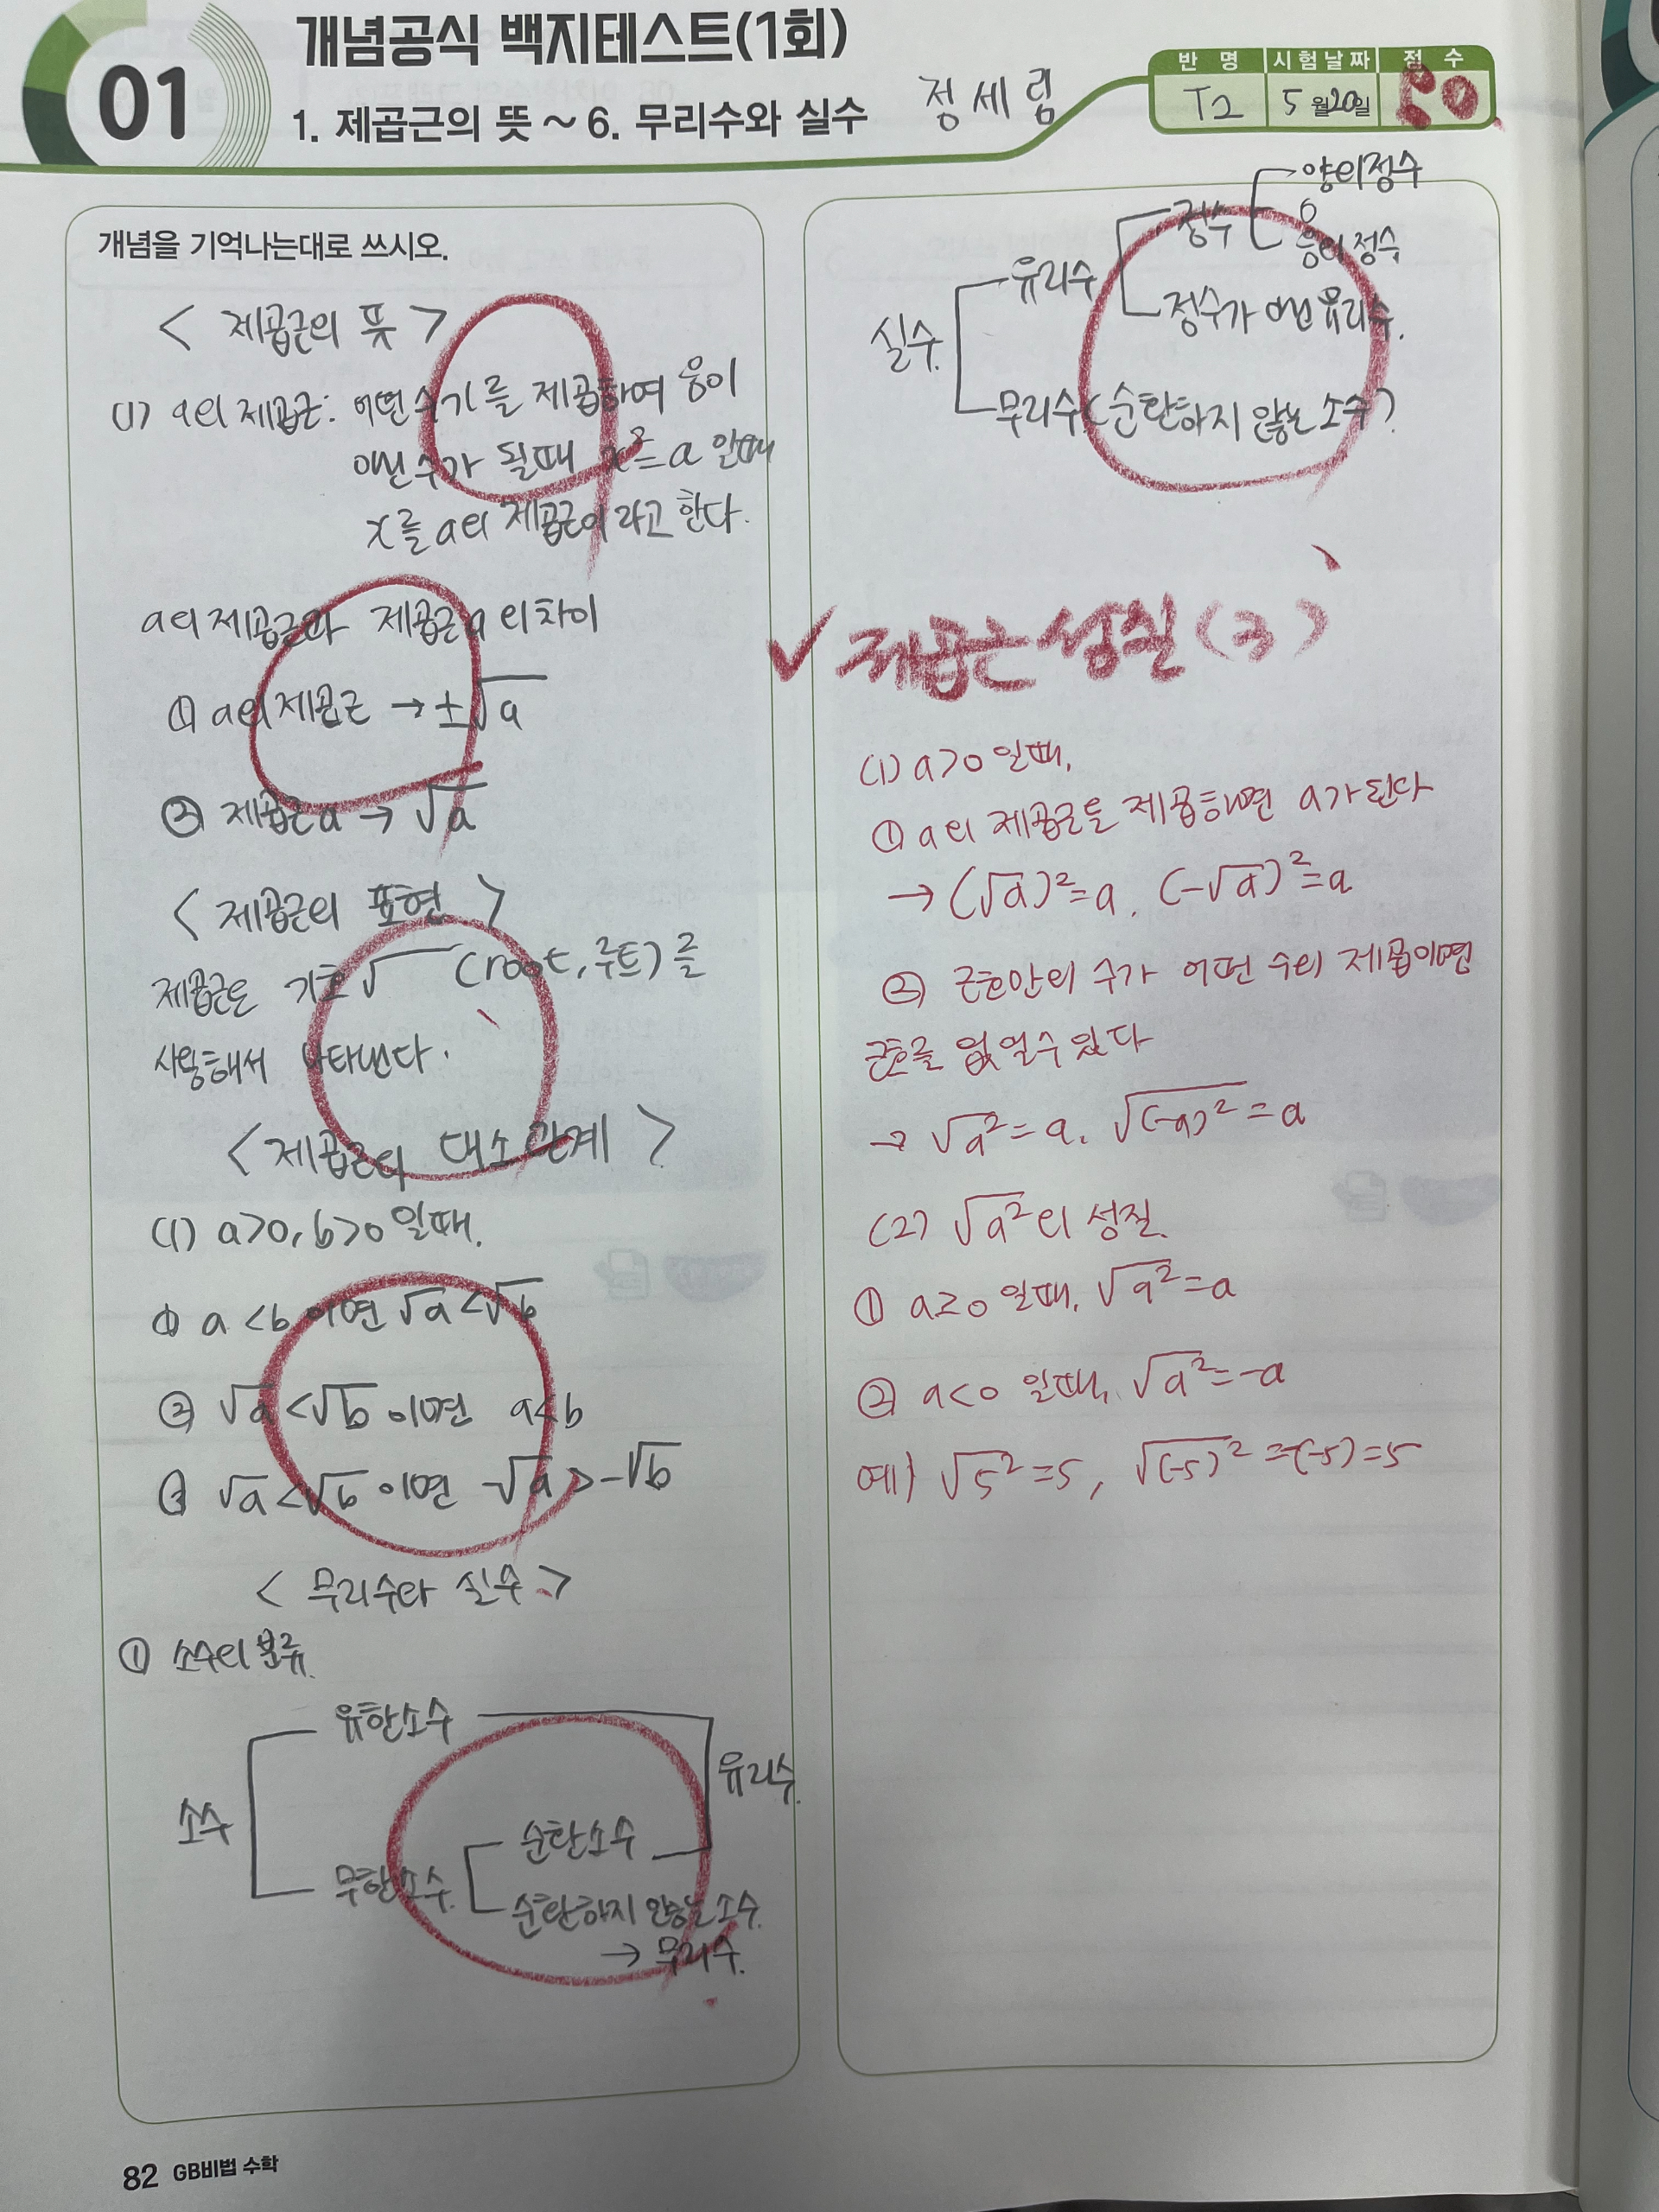 01
개념공식 백지테스트(1회)
1. 제곱근의 뜻 ~ 6. 무리수와 실수
정세림
반 명 시험날짜 점 수
T2 5월20일
개념을 기억나는대로 쓰시오.
< 제곱근의 뜻 >
(1) a의 제곱근: 어떤 수 를 제곱하여 음이
아닌 수가 될때 x²=a 일때
x를 a의 제곱근이라고 한다.
a의 제곱근과 제곱근a의 차이
① a의 제곱근 → ±√a
② 제곱근a → √a
< 제곱근의 표현 >
제곱근은 기호√ (root, 루트)를
사용해서 나타낸다.
< 제곱근의 대소 관계 >
(1) a>0, b>0 일때.
① a<b 이면 √a<√b
② √a<√b 이면 a<b
③ √a<√b 이면 -√a>-√b
< 무리수와 실수 >
① 소수의 분류.
유한소수
유리수.
소수
순환소수
무한소수.
순환하지 않는 소수.
→ 무리수.
양의정수
정수 0
음의정수
유리수
정수가 아닌 유리수.
실수.
무리수(순환하지 않는 소수)
✓ 제곱근 성질(3)
(1) a>0 일때,
① a의 제곱근을 제곱하면 a가 된다
→ (√a)²=a. (-√a)²=a
② 근호안의 수가 어떤 수의 제곱이면
근호를 없앨수 있다
→ √a²=a. √(-a)²=a
(2) √a²의 성질.
① a≥0 일때, √a²=a
② a<0 일때, √a²=-a
예) √5²=5, √(-5)²=-(-5)=5
82 GB비법 수학